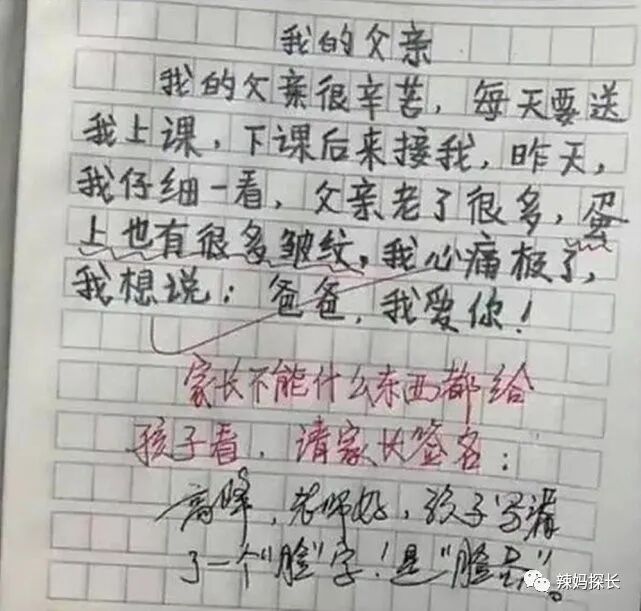 我的父亲
我的父亲很辛苦，每天要送
我上课，下课后来接我，昨天，
我仔细一看，父亲老了很多，蛋
上也有很多皱纹，我心痛极了，
我想说：爸爸，我爱你！
家长不能什么东西都给
孩子看，请家长签名：
高峰，老师好，孩子写满
了一个“脸”字！是“脸蛋”。
辣妈探长